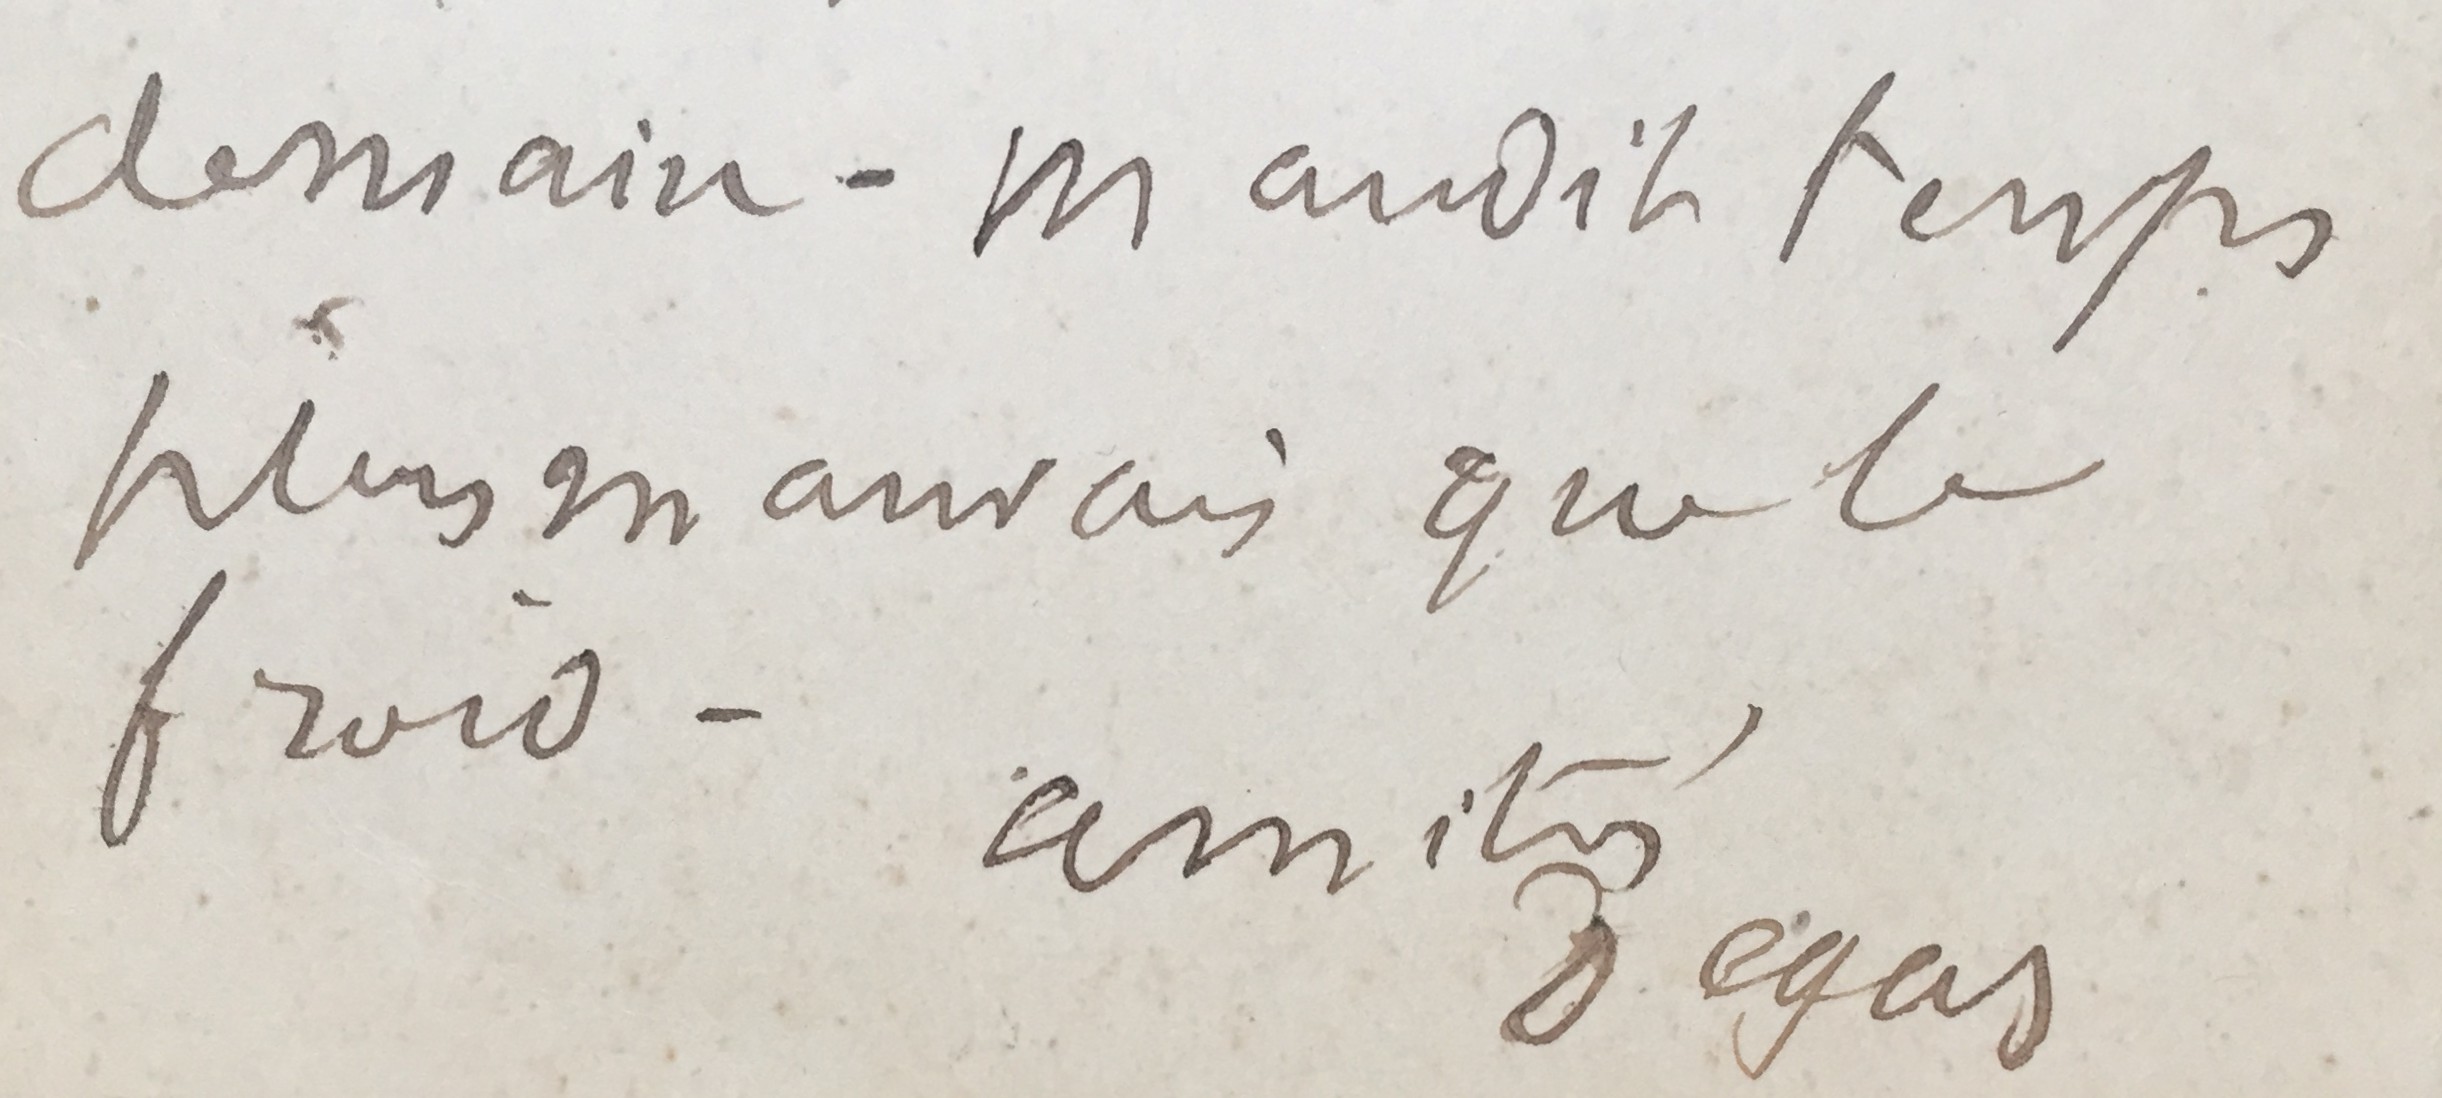 demain - Maudit temps
plus mauvais que le
froid -
amitiés
Degas